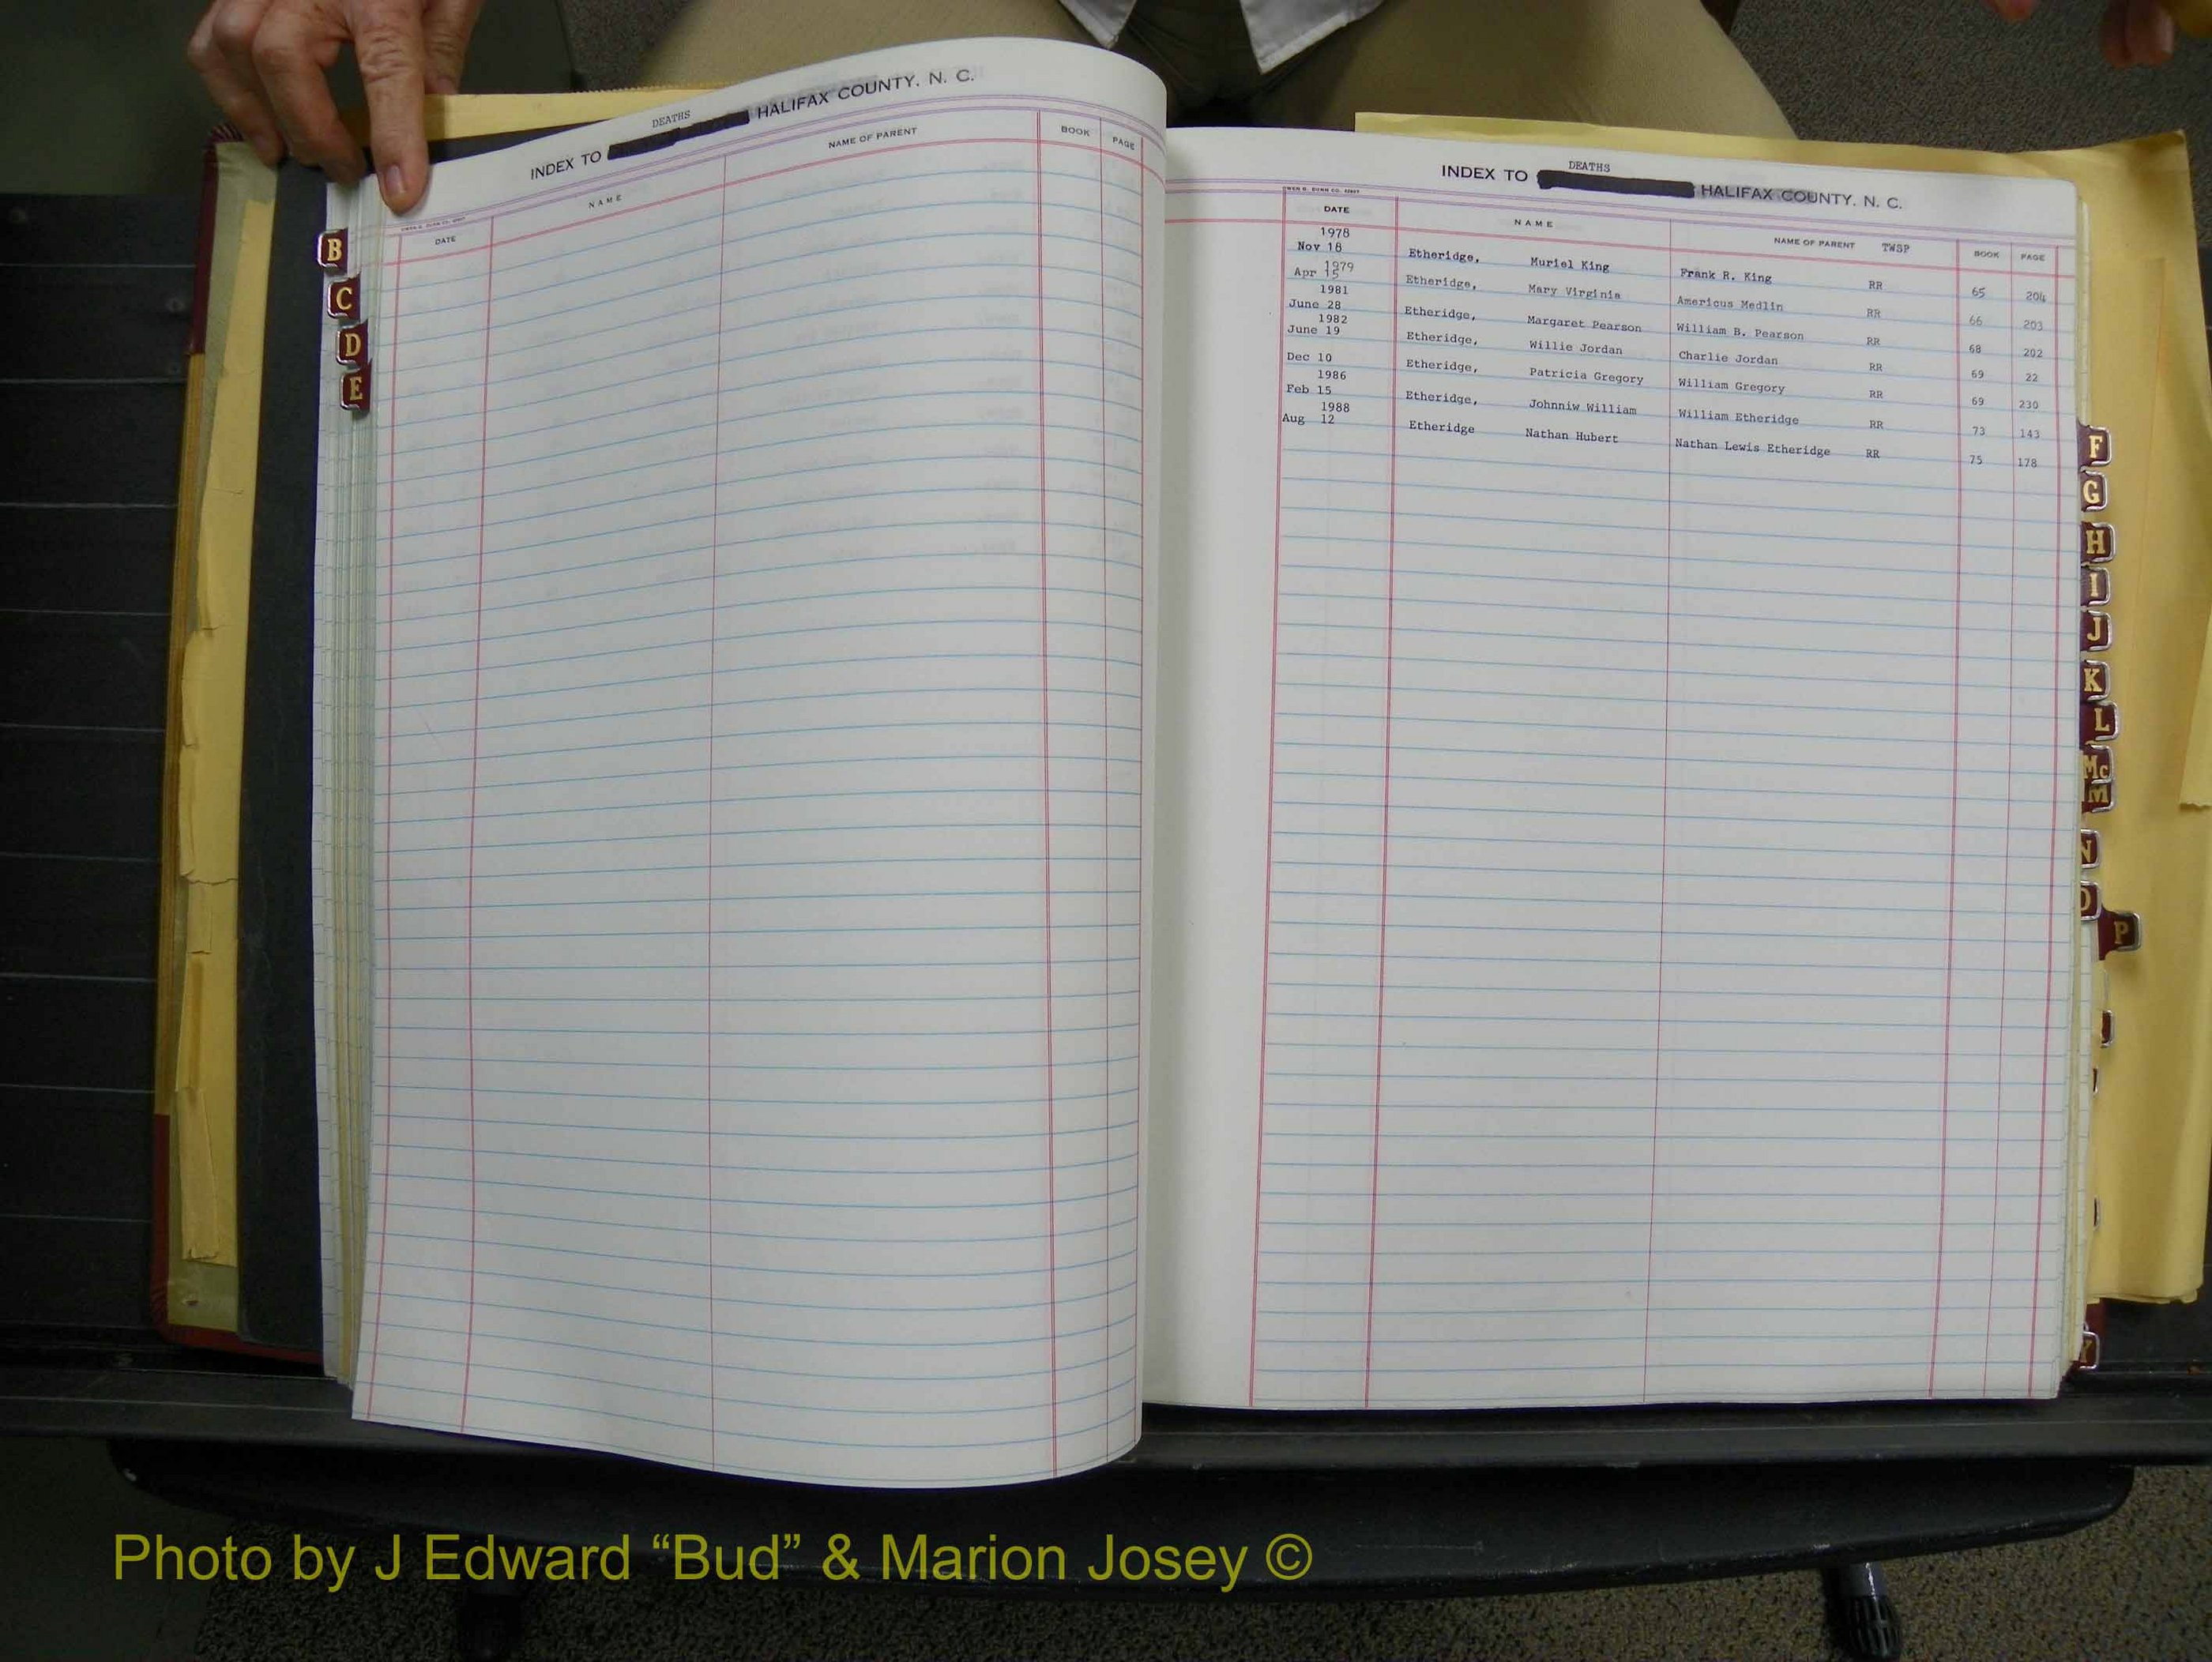 DEATHS
INDEX TO HALIFAX COUNTY. N. C.
DATE NAME NAME OF PARENT BOOK PAGE
B
C
D
E
DEATHS
INDEX TO HALIFAX COUNTY. N. C.
OWEN G. DUNN CO.
DATE NAME NAME OF PARENT TWSP BOOK PAGE
1978
Nov 18 Etheridge, Muriel King Frank R. King RR 65 204
1979
Apr 15 Etheridge, Mary Virginia Americus Medlin RR 66 203
1981
June 28 Etheridge, Margaret Pearson William B. Pearson RR 68 202
1982
June 19 Etheridge, Willie Jordan Charlie Jordan RR 69 22
Dec 10 Etheridge, Patricia Gregory William Gregory RR 69 230
1986
Feb 15 Etheridge, Johnniw William William Etheridge RR 73 143
1988
Aug 12 Etheridge Nathan Hubert Nathan Lewis Etheridge RR 75 178
F
G
H
I
J
K
L
Mc
M
N
O
P
Y
Photo by J Edward “Bud” & Marion Josey ©